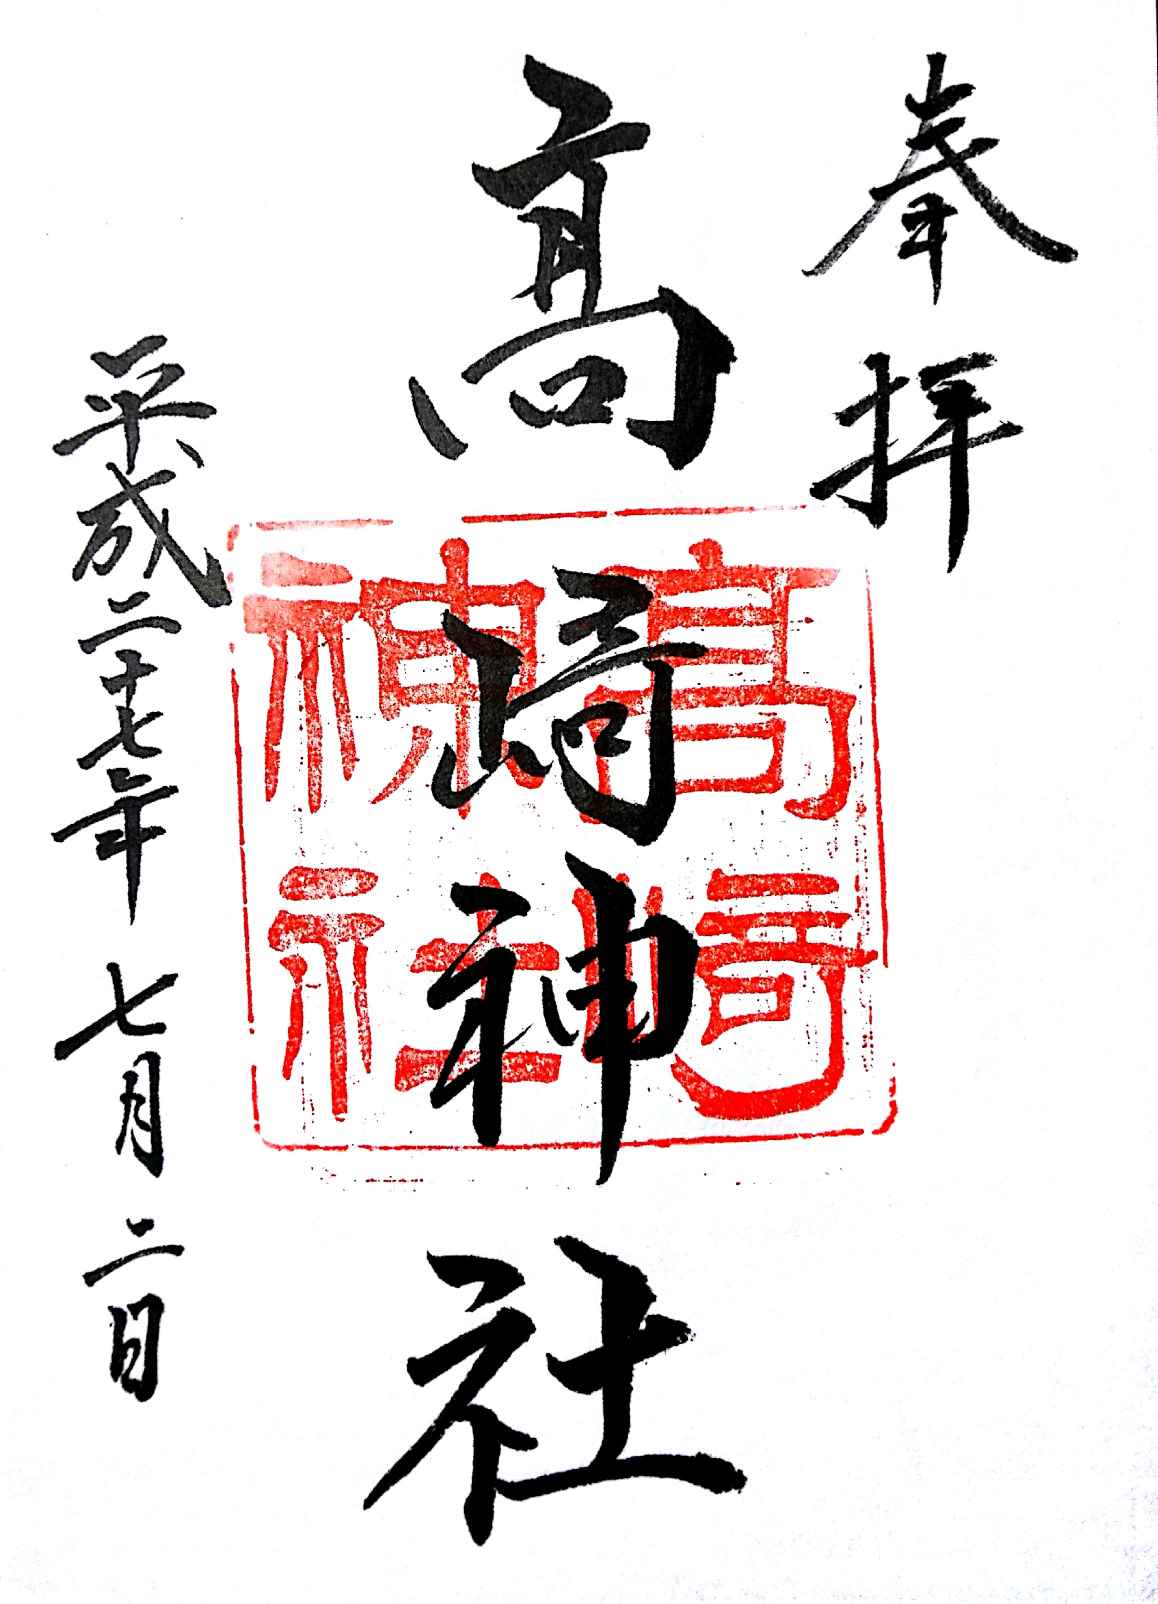 奉拝
髙﨑神社
高崎神社
平成二十七年七月二日